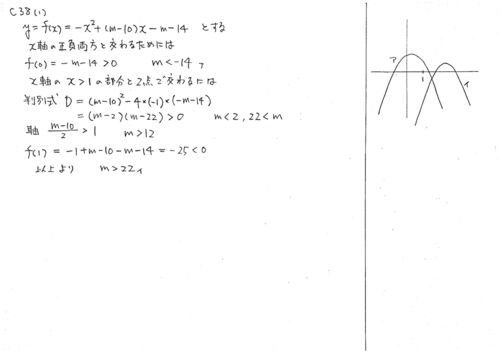 C38(1)
y=f(x)=-x²+(m-10)x-m-14 とする
x軸の正負両方と交わるためには
f(0)=-m-14>0 m<-14 ア
x軸の x>1 の部分と2点で交わるには
判別式 D=(m-10)²-4*(-1)*(-m-14)
=(m-2)(m-22)>0 m<2, 22<m
軸 (m-10)/2>1 m>12
f(1)=-1+m-10-m-14=-25<0
以上より m>22 イ
ア
1
イ